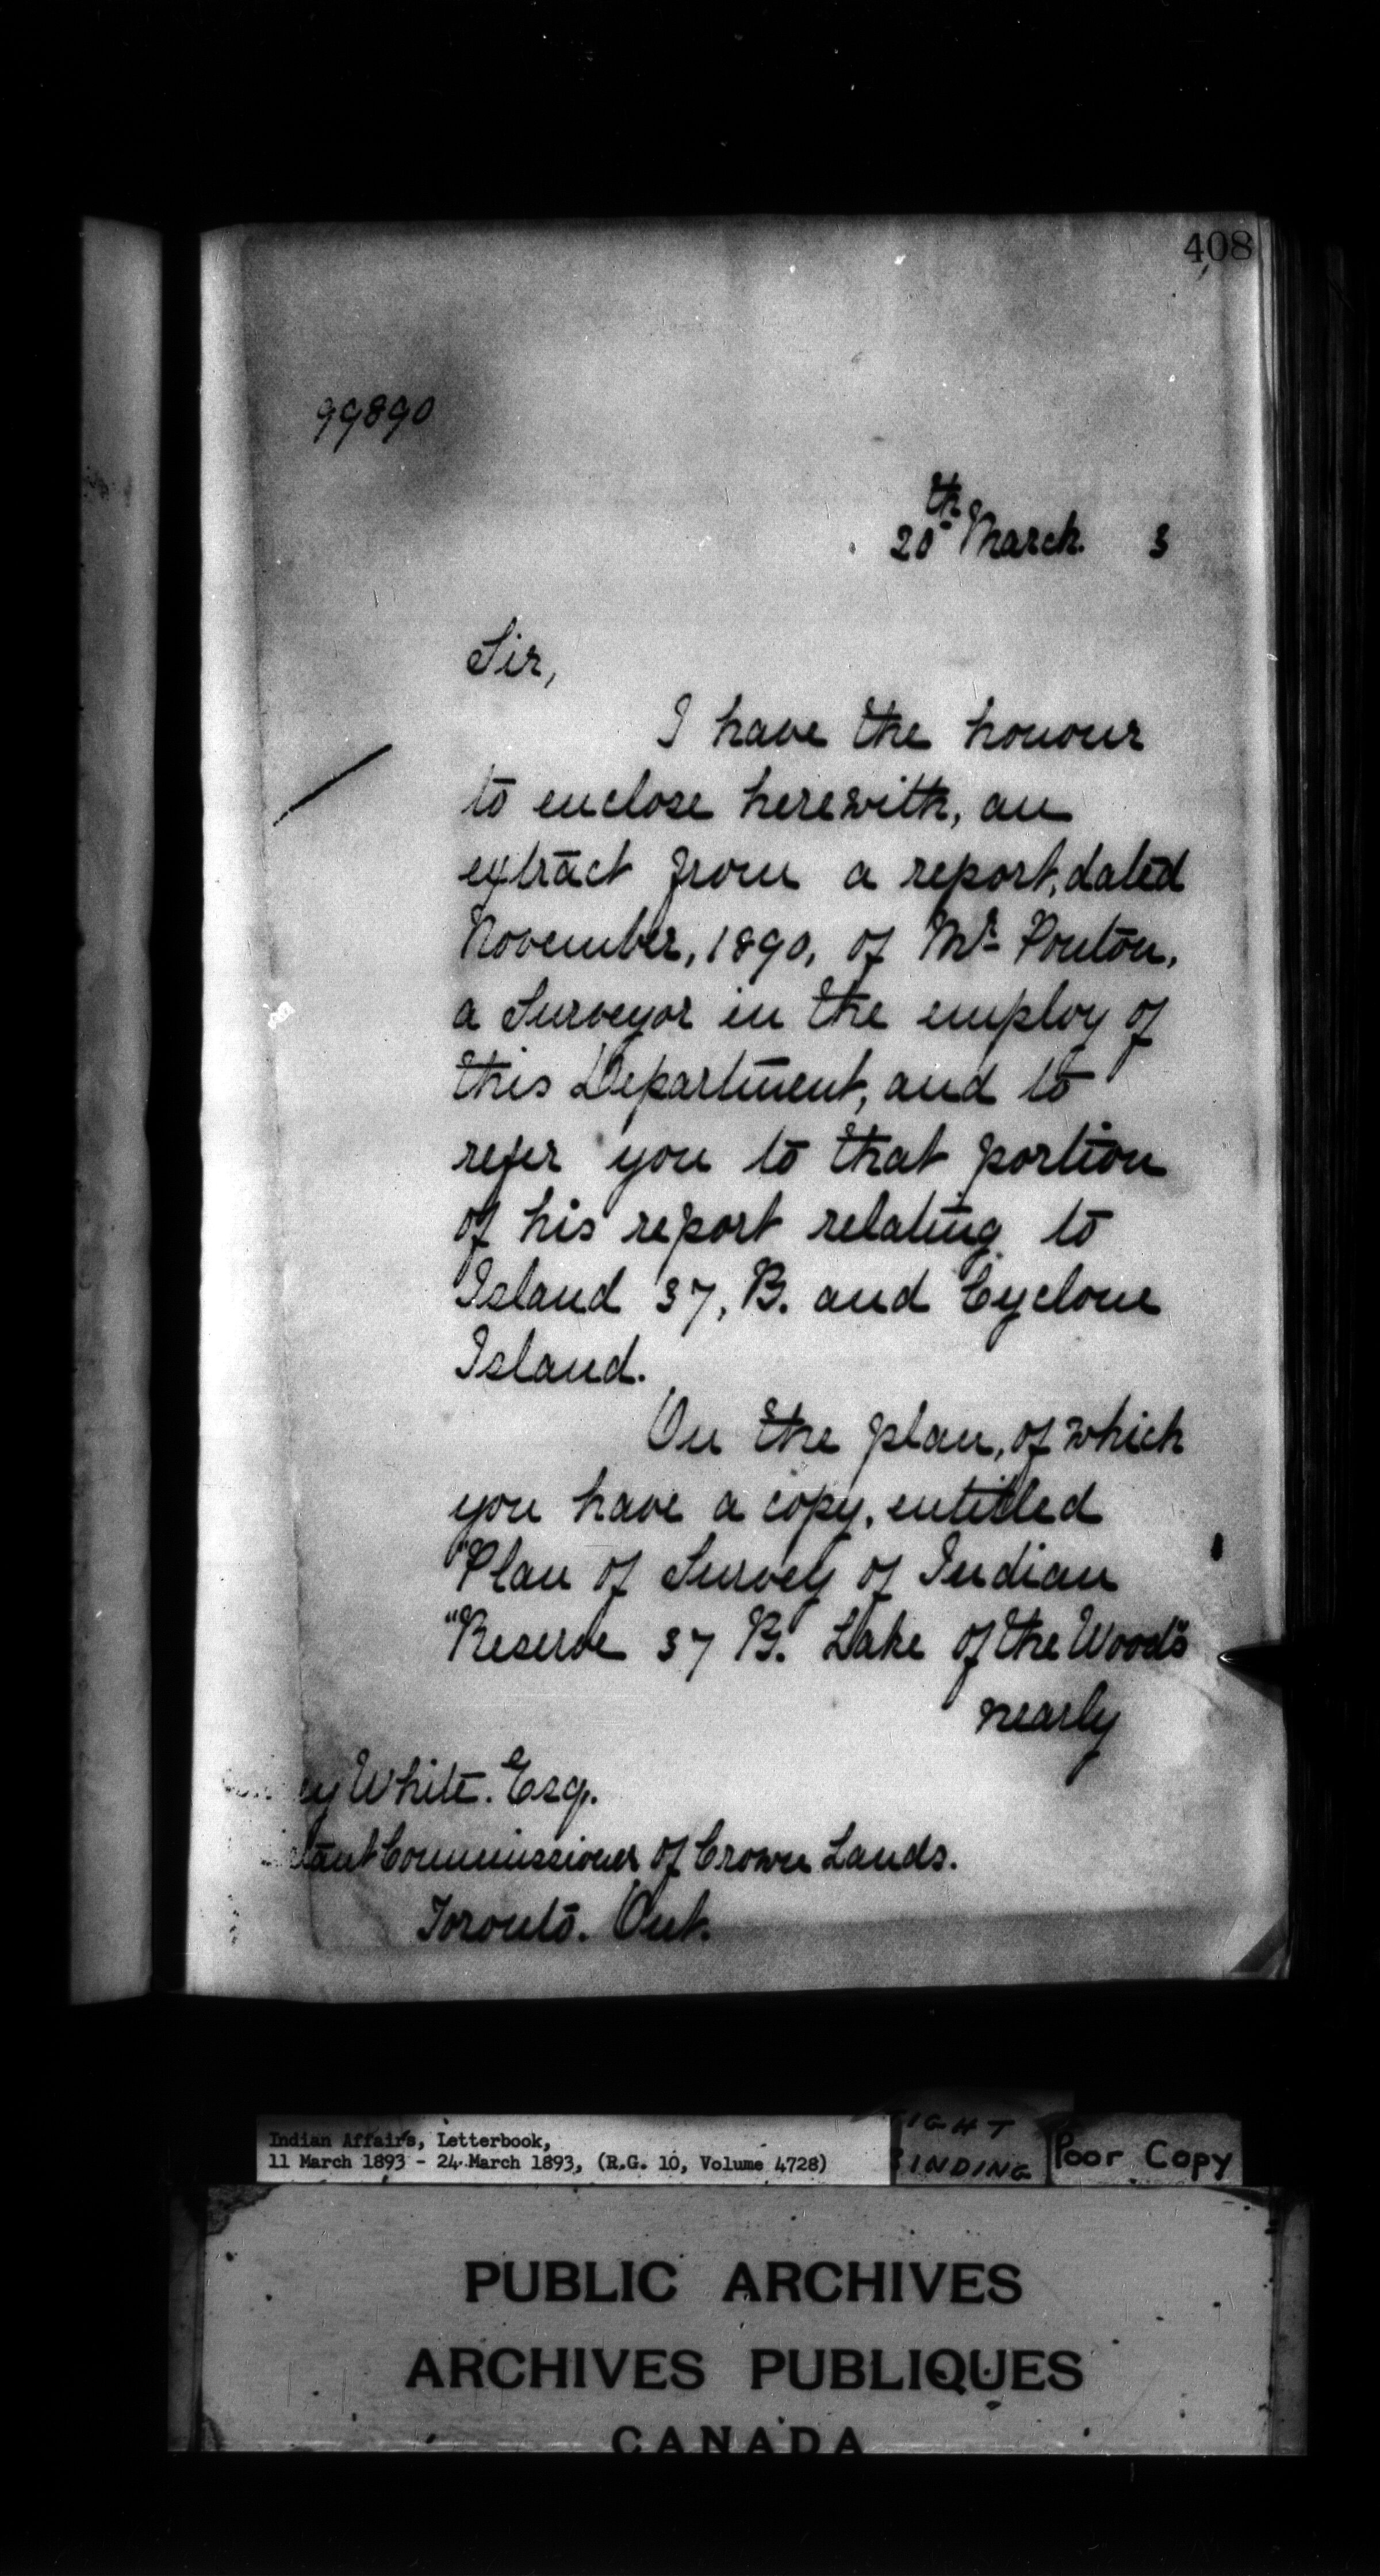 408
99890
20th March. 3
Sir,
I have the honour
to enclose herewith, an
extract from a report, dated
November, 1890, of Mr. Ponton,
a Surveyor in the employ of
this Department, and to
refer you to that portion
of his report relating to
Island 37, B. and Cyclone
Island.
On the plan, of which
you have a copy, entitled
"Plan of Survey of Indian
"Reserve 37 B. Lake of the Woods"
nearly
ey White. Esq.
tant Commissioner of Crown Lands.
Toronto. Ont.
Indian Affairs, Letterbook,
11 March 1893 - 24 March 1893, (R.G. 10, Volume 4728)
IGHT
INDING
Poor Copy
PUBLIC ARCHIVES
ARCHIVES PUBLIQUES
CANADA